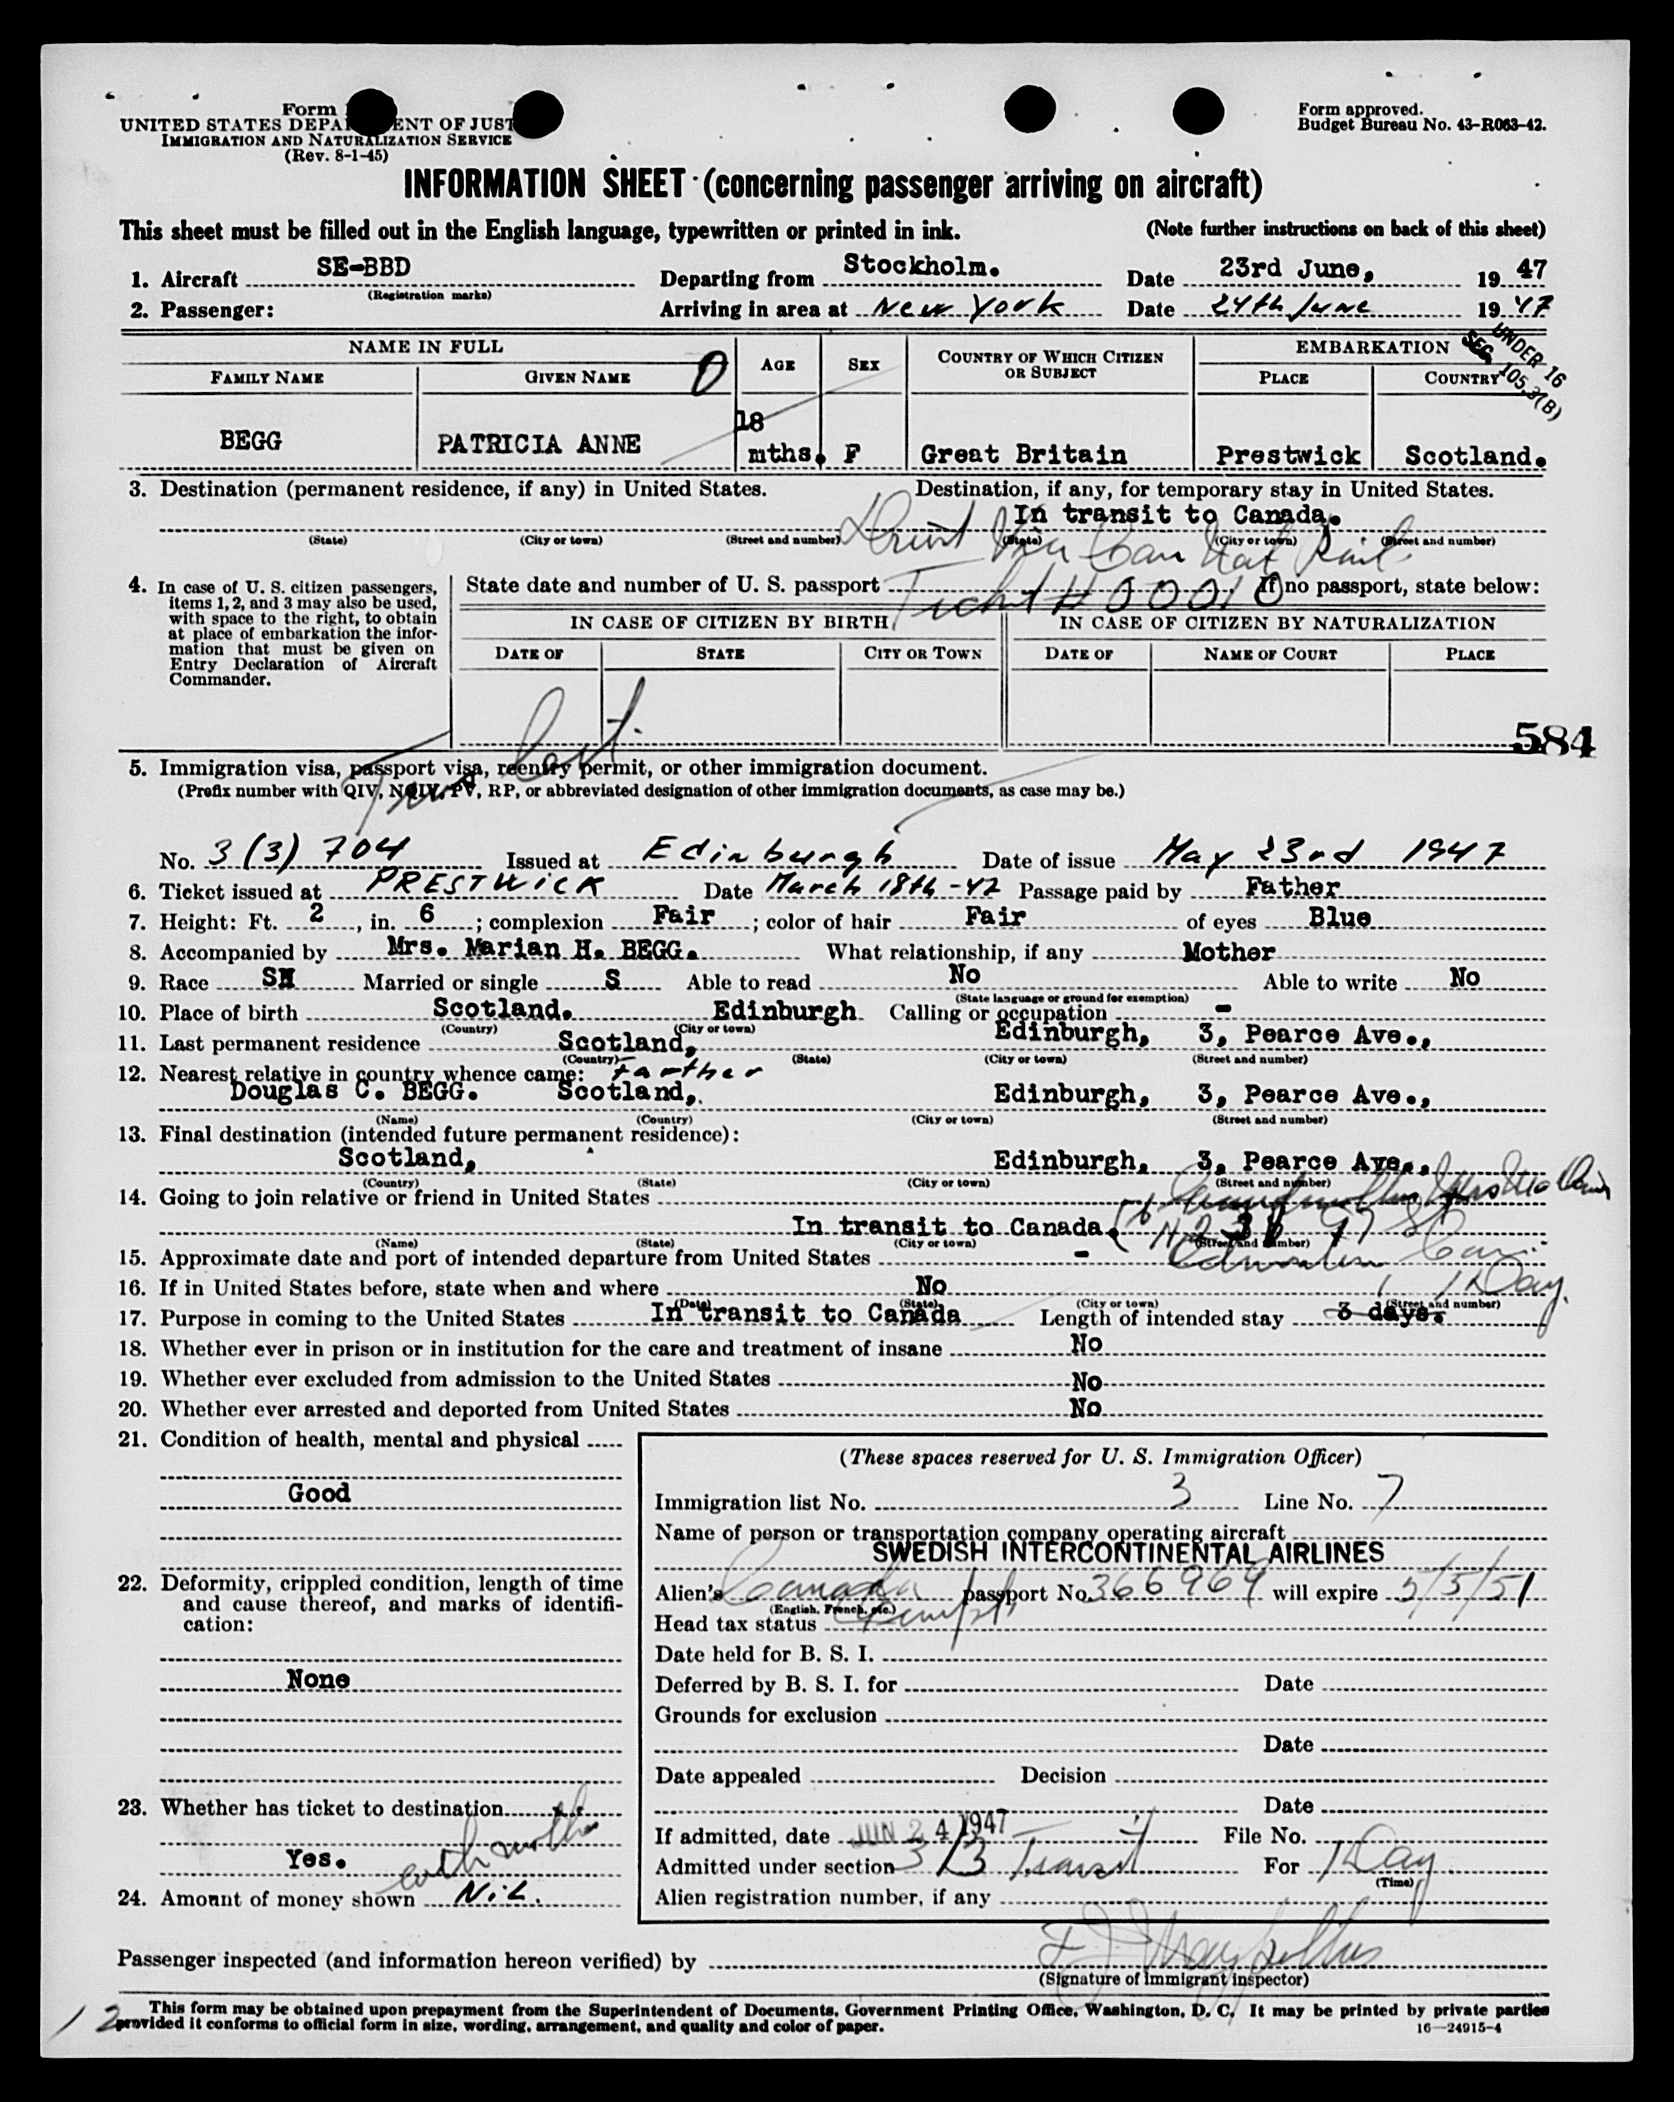 Form
UNITED STATES DEPA ENT OF JUST
IMMIGRATION AND NATURALIZATION SERVICE
(Rev. 8-1-45)
Form approved.
Budget Bureau No. 43-R063-42.
INFORMATION SHEET (concerning passenger arriving on aircraft)
This sheet must be filled out in the English language, typewritten or printed in ink. (Note further instructions on back of this sheet)
1. Aircraft SE-BBD Departing from Stockholm. Date 23rd June, 1947
(Registration marks)
2. Passenger: Arriving in area at New York Date 24th June 1947
UNDER 16
SEC. 105.3(B)
NAME IN FULL EMBARKATION
FAMILY NAME GIVEN NAME O AGE SEX COUNTRY OF WHICH CITIZEN OR SUBJECT PLACE COUNTRY
BEGG PATRICIA ANNE 18 mths. F Great Britain Prestwick Scotland.
3. Destination (permanent residence, if any) in United States. Destination, if any, for temporary stay in United States.
In transit to Canada.
(State) (City or town) (Street and number) (State) (City or town) (Street and number)
Via Can Nat Rail
4. In case of U. S. citizen passengers, items 1, 2, and 3 may also be used, with space to the right, to obtain at place of embarkation the information that must be given on Entry Declaration of Aircraft Commander.
State date and number of U. S. passport If no passport, state below:
Ticket # 00010
IN CASE OF CITIZEN BY BIRTH IN CASE OF CITIZEN BY NATURALIZATION
DATE OF STATE CITY OR TOWN DATE OF NAME OF COURT PLACE
584
5. Immigration visa, passport visa, reentry permit, or other immigration document.
(Prefix number with QIV, NQIV, PV, RP, or abbreviated designation of other immigration documents, as case may be.)
Trans Cert.
No. 3(3) 704 Issued at Edinburgh Date of issue May 23rd 1947
6. Ticket issued at PRESTWICK Date March 18th -47 Passage paid by Father
7. Height: Ft. 2, in. 6; complexion Fair; color of hair Fair of eyes Blue
8. Accompanied by Mrs. Marian H. BEGG. What relationship, if any Mother
9. Race SH Married or single S Able to read No Able to write No
(State language or ground for exemption)
10. Place of birth Scotland. Edinburgh Calling or occupation -
(Country) (City or town)
11. Last permanent residence Scotland, Edinburgh, 3, Pearce Ave.,
(Country) (State) (City or town) (Street and number)
12. Nearest relative in country whence came: Farther
Douglas C. BEGG. Scotland, Edinburgh, 3, Pearce Ave.,
(Name) (Country) (City or town) (Street and number)
13. Final destination (intended future permanent residence):
Scotland, Edinburgh, 3, Pearce Ave.,
(Country) (State) (City or town) (Street and number)
14. Going to join relative or friend in United States
Grandmother Mrs
In transit to Canada. 97 St
(Name) (State) (City or town) (Street and number)
Edmonton Can.
15. Approximate date and port of intended departure from United States -
16. If in United States before, state when and where No
(Date) (State) (City or town) (Street and number)
1 Day.
17. Purpose in coming to the United States In transit to Canada Length of intended stay 3 days.
18. Whether ever in prison or in institution for the care and treatment of insane No
19. Whether ever excluded from admission to the United States No
20. Whether ever arrested and deported from United States No
21. Condition of health, mental and physical
Good
22. Deformity, crippled condition, length of time and cause thereof, and marks of identification:
None
23. Whether has ticket to destination
Yes. with mother
24. Amount of money shown NiL.
(These spaces reserved for U. S. Immigration Officer)
Immigration list No. 3 Line No. 7
Name of person or transportation company operating aircraft
SWEDISH INTERCONTINENTAL AIRLINES
Alien's Canada passport No. 366969 will expire 5/5/51
(English, French, etc.)
Head tax status Exempt
Date held for B. S. I.
Deferred by B. S. I. for Date
Grounds for exclusion
Date
Date appealed Decision
Date
If admitted, date JUN 24 1947 File No.
Admitted under section 3/3 Transit For 1 Day
(Time)
Alien registration number, if any
Passenger inspected (and information hereon verified) by
(Signature of immigrant inspector)
This form may be obtained upon prepayment from the Superintendent of Documents, Government Printing Office, Washington, D. C. It may be printed by private parties
provided it conforms to official form in size, wording, arrangement, and quality and color of paper. 16—24915-4
12